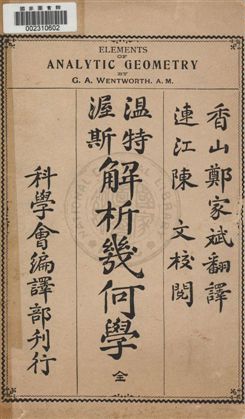 國家圖書館
002310602
ELEMENTS
OF
ANALYTIC GEOMETRY
BY
G. A. WENTWORTH. A. M.
香山鄭家斌翻譯
連江陳文校閱
溫特
渥斯
解析幾何學 全
科學會編譯部刊行